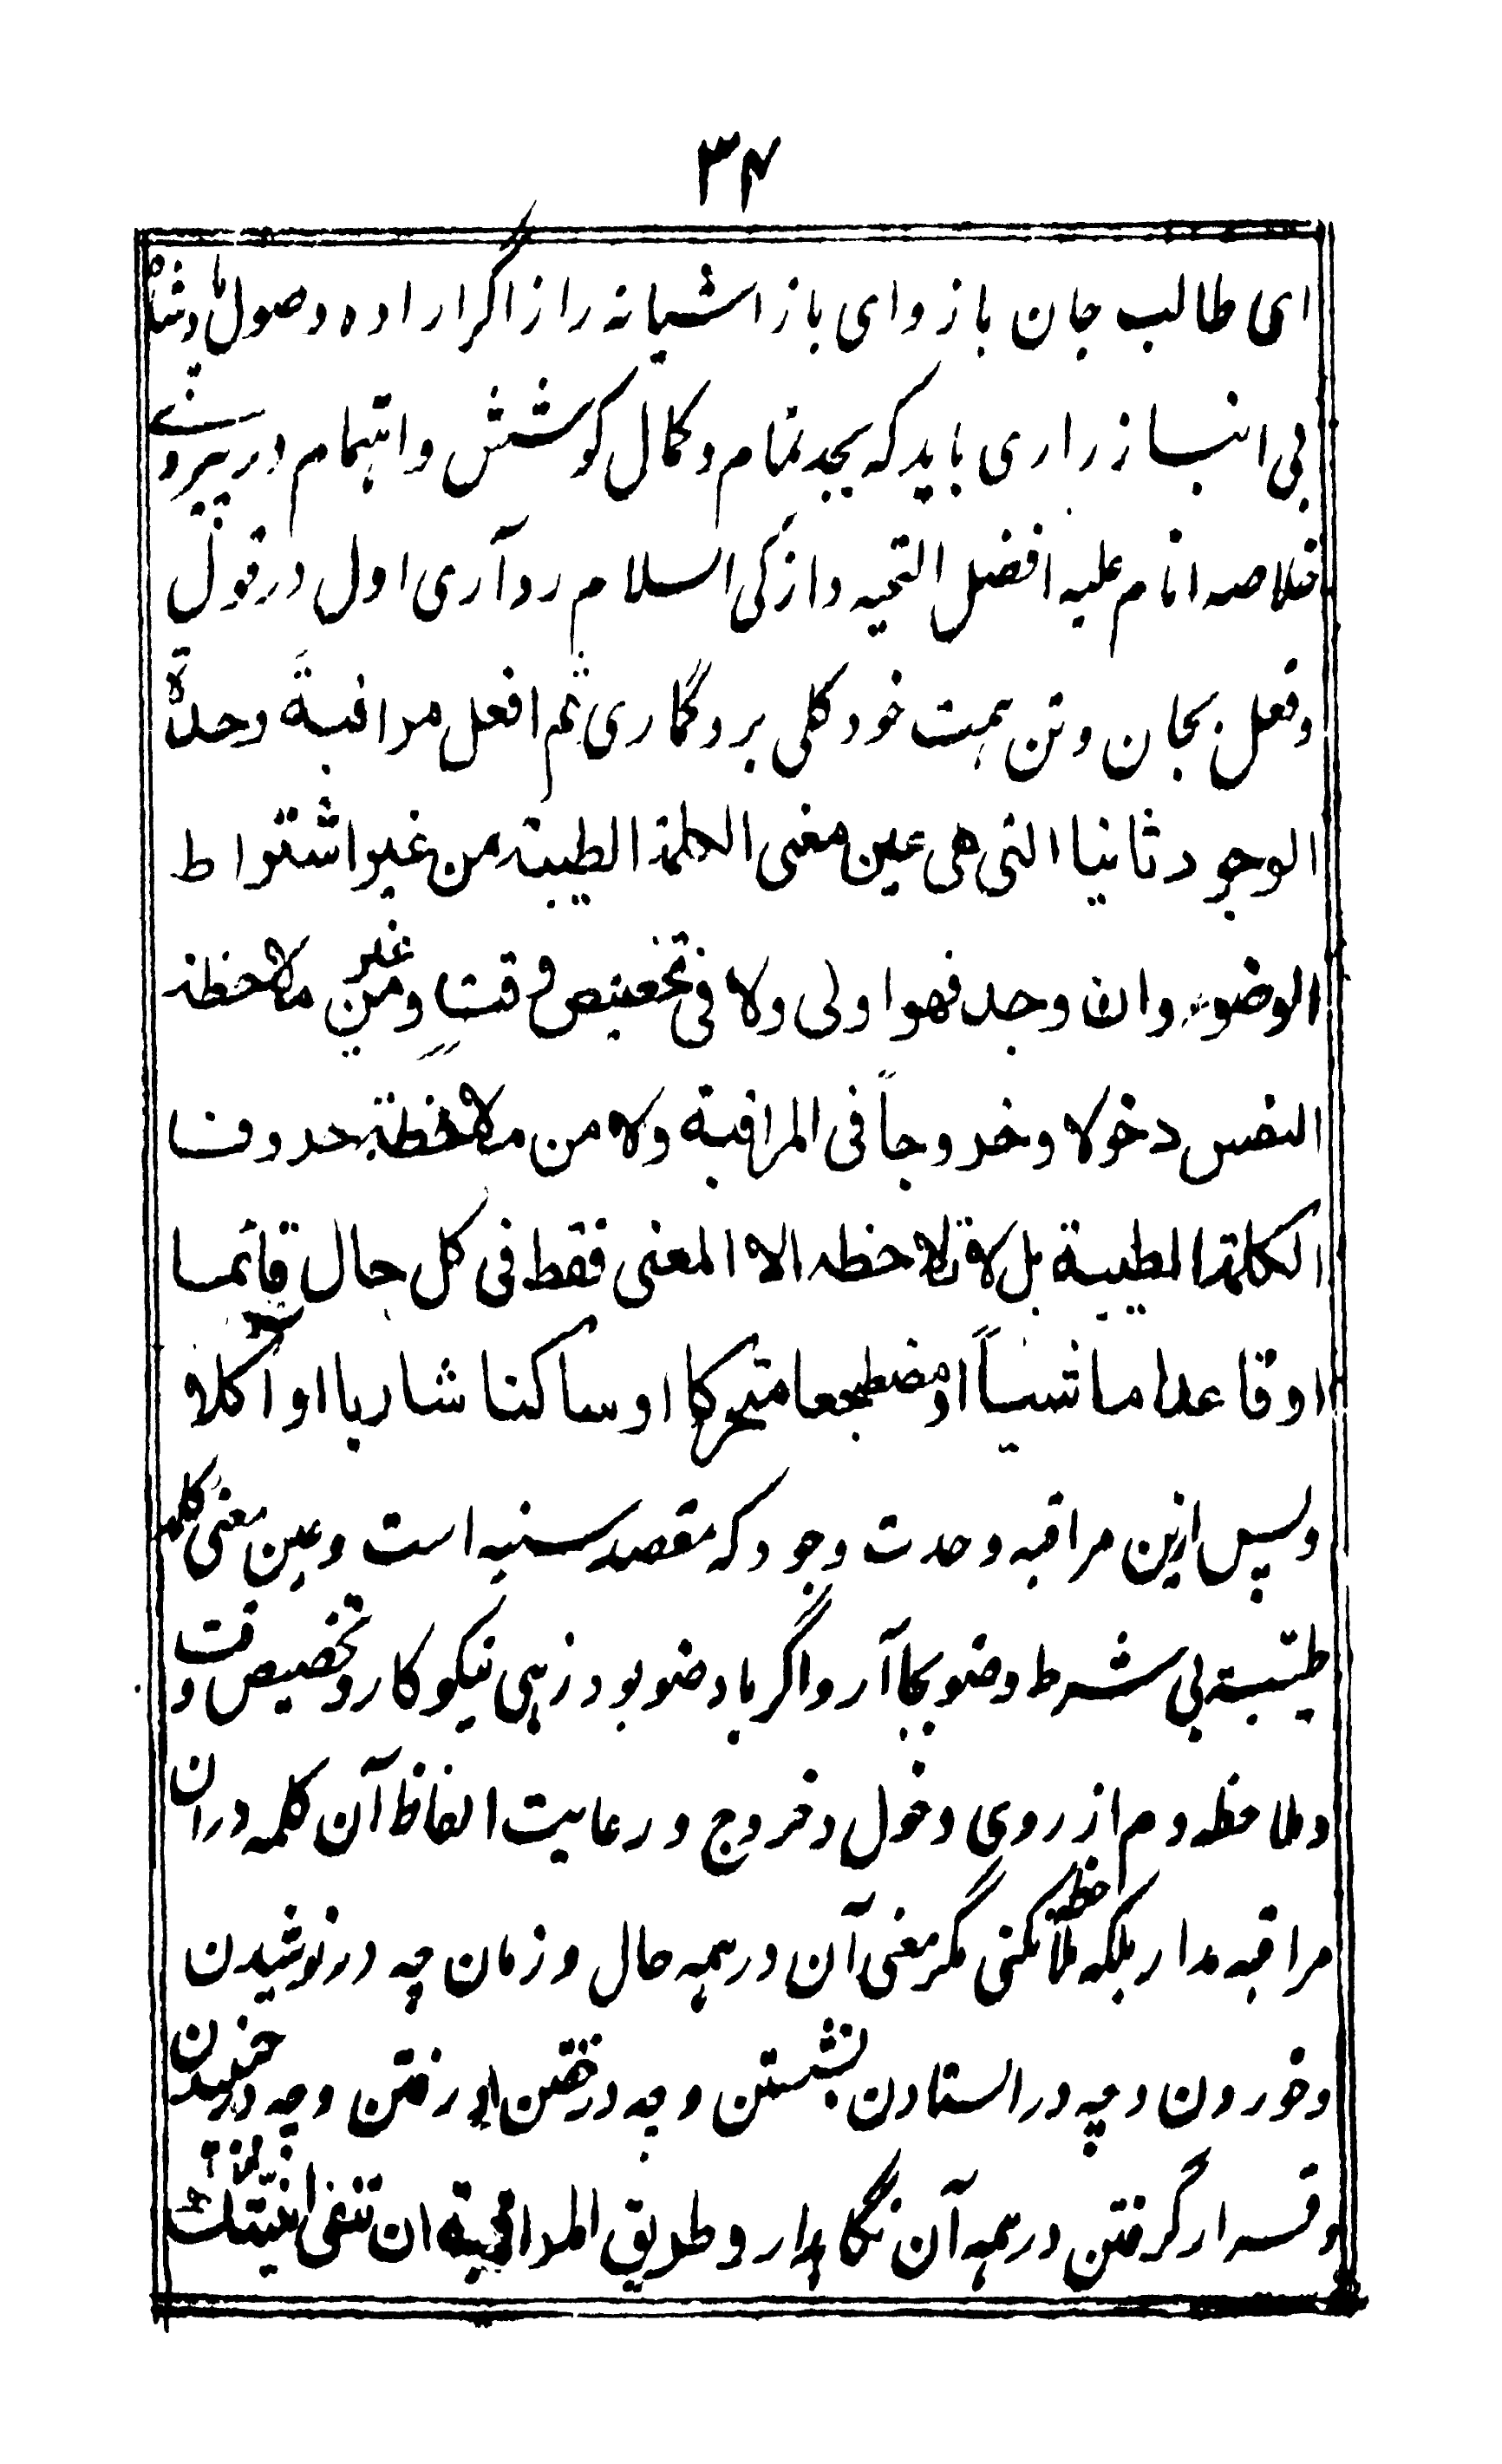 ۳۴
ای طالب جان باز و ای باز آشیانه راز اگر اراده وصول بادشاه
بی انباز داری باید که بجد تمام و کمال کوشش و اهتمام در پیروی
خلاصه انام علیه افضل التحیه و ازکی السلام رو آری اول در قول
و فعل بجان و تن همت خود کلی بروگماری ثم افعل مراقبةَ وحدة
الوجود ثانیا التی هی عین معنی الکلمة الطیبة من غیر اشتراط
الوضوء وان وجد فهو اولی ولا فی تخصیص وقتٍ ومن غیر ملاحظة
النفس دخولا وخروجاً فی المراقبة ولا من ملاحظة حروف
الکلمة الطیبة بل لا تلاحظ الا المعنی فقط فی کل حال قائما
او قاعدا ماشیاً او مضطجعا متحرکا او ساکنا شاربا او آکلا
و پس ازین مراقبه وحدت وجود که مقصد سنیه است و عین معنی کلمه
طیّبة بی شرط وضو بجا آر و اگر باوضو بود زهی نیکو کار و تخصیص وقت
و ملاحظه دم از روی دخول و خروج و رعایت الفاظ آن کلمه در ان
مراقبه مدار بلکه ملاحظه نکنی مگر معنی آن در همه حال و زمان چه در نوشیدن
و خوردن و چه در استادن نشستن و چه در خفتن و رفتن و چه در جنبیدن
و قرار گرفتن در همه آن نگاهدار و طریق المراقبة ان تنفی انیّتک